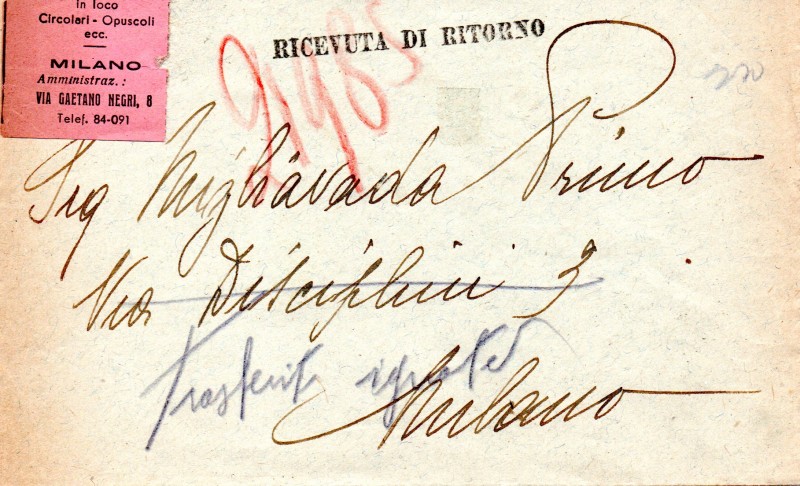 in loco
Circolari - Opuscoli
ecc.
MILANO
Amministraz.:
VIA GAETANO NEGRI, 8
Telef. 84-091
RICEVUTA DI RITORNO
21985
Sig Migliavada Primo
Via Disciplini 3
Trasferito ignoto
Milano